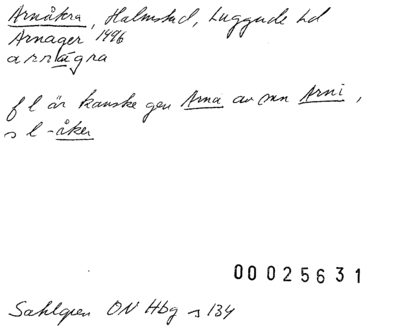 Arnåkra, Halmstad, Luggude hd
Arnager 1496
arnågra
f l är kanske gen Arna av mn Arni,
s l -åker
00025631
Sahlgren ON Hbg s 134